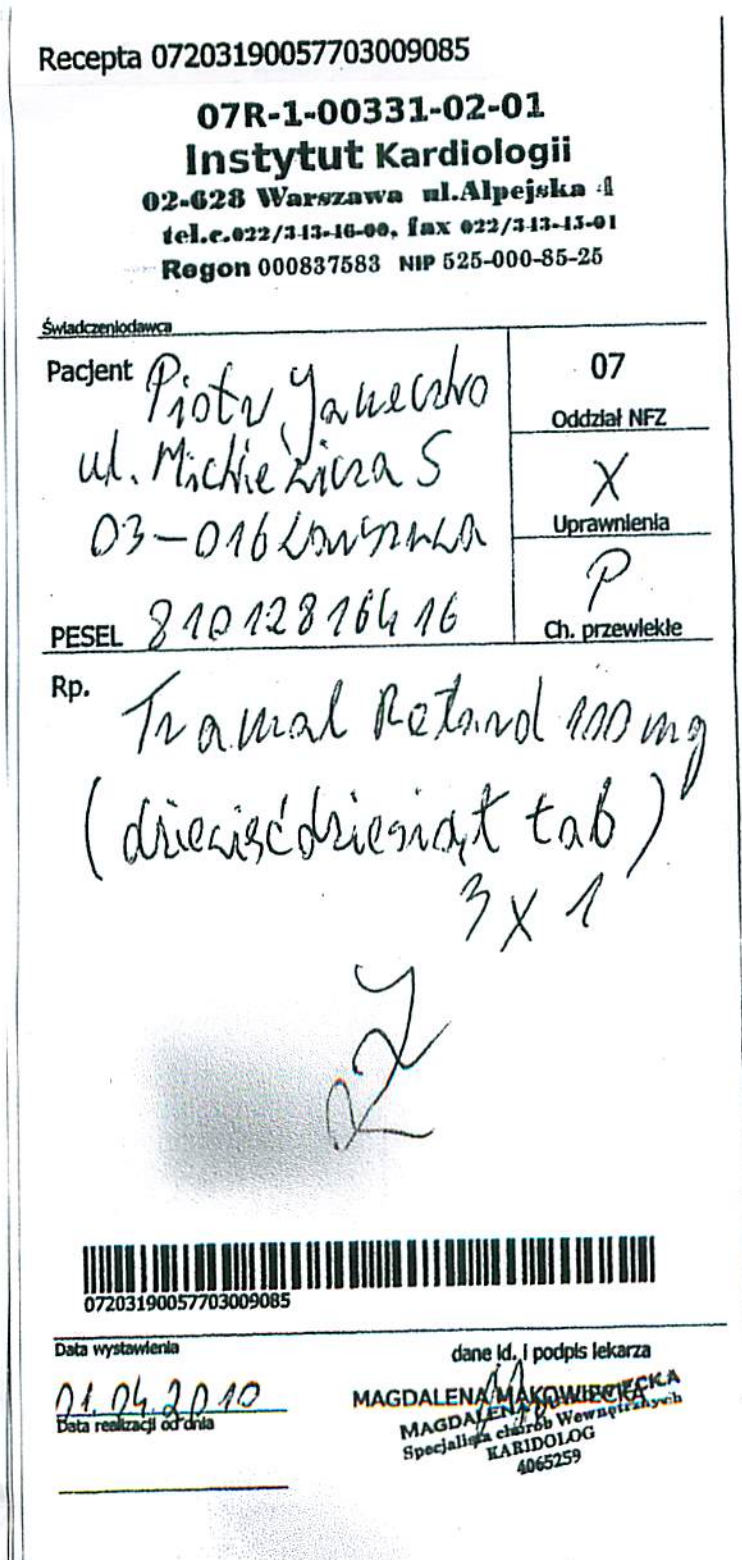 Recepta 07203190057703009085
07R-1-00331-02-01
Instytut Kardiologii
02-628 Warszawa ul.Alpejska 4
tel.c.022/343-46-00, fax 022/343-43-01
Regon 000837583 NIP 525-000-85-25
Świadczeniodawca
Pacjent Piotr Janeczko
ul. Mickiewicza 5
03-016 Warszawa
PESEL 81012816416
07
Oddział NFZ
X
Uprawnienia
P
Ch. przewlekłe
Rp. Tramal Retard 100 mg
(dziewięćdziesiąt tab)
3 x 1
07203190057703009085
Data wystawienia
01.04.2010
Data realizacji od dnia
dane id. i podpis lekarza
MAGDALENA MAKOWIECKA
MAGDALENA MAKOWIECKA
Specjalista chorób Wewnętrznych
KARIDOLOG
4065259